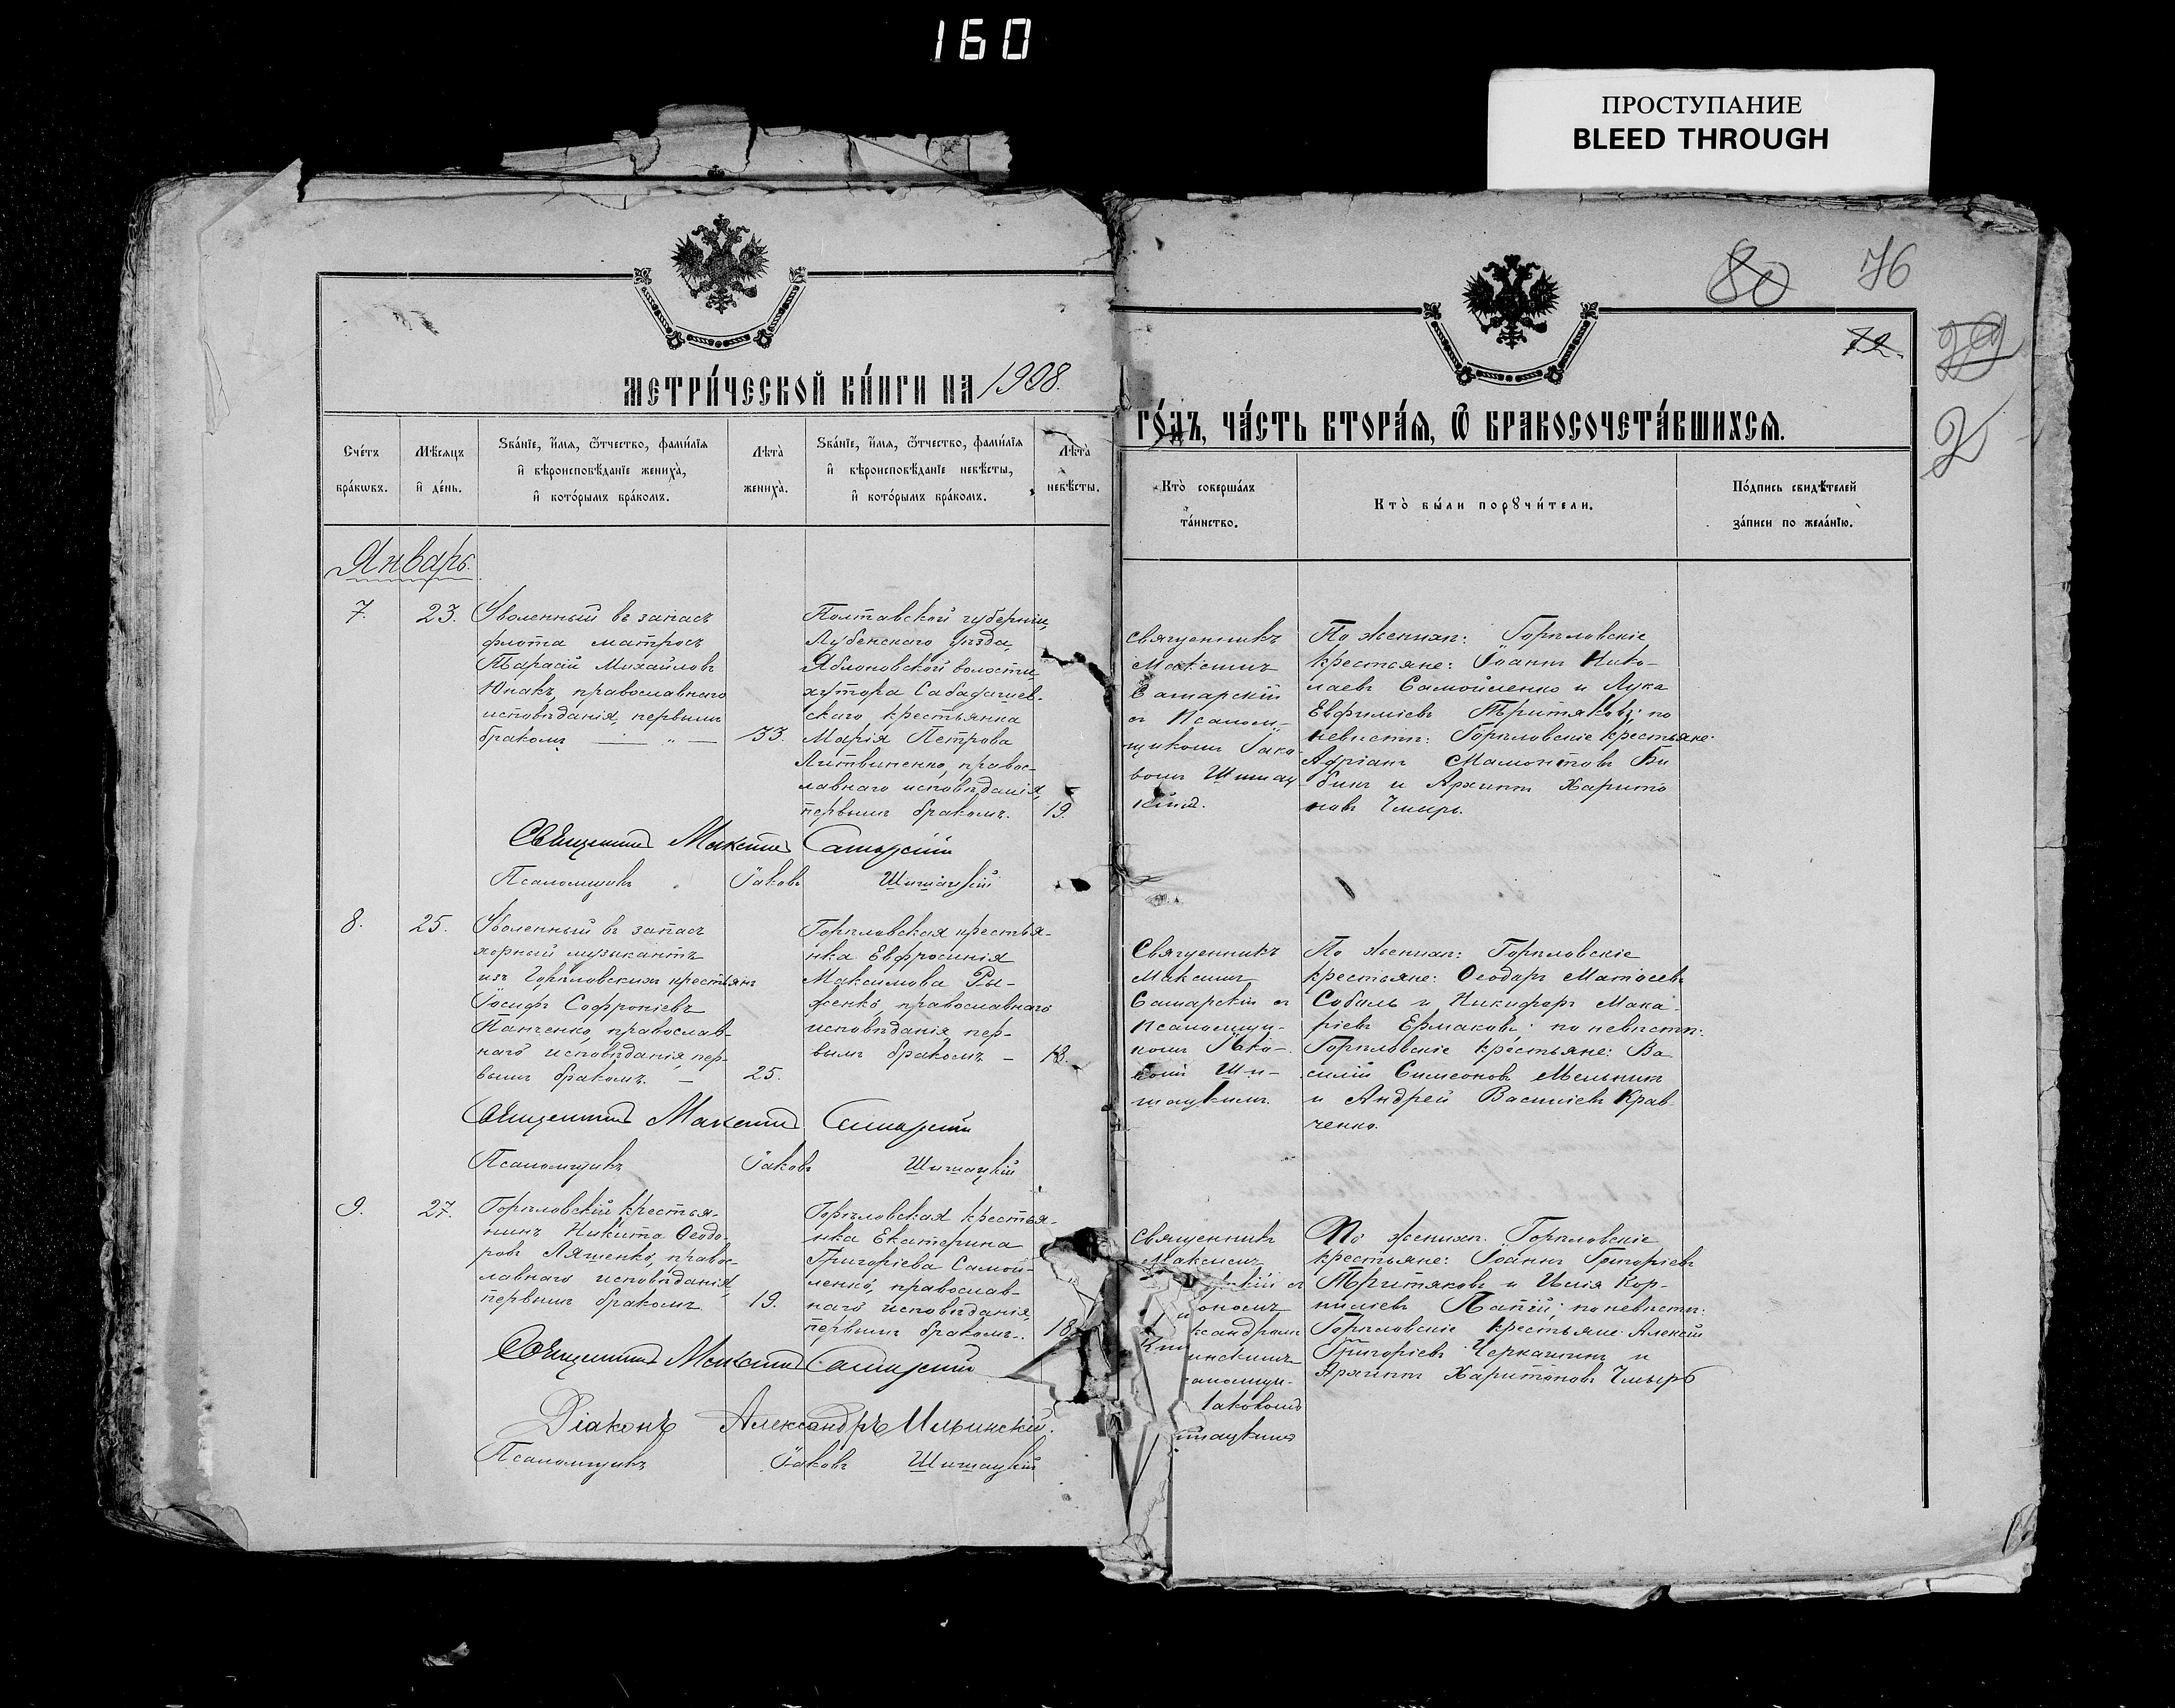 160
ПРОСТУПАНИЕ
BLEED THROUGH
80 76
72.
МЕТРИ́ЧЕСКОЙ КНИ́ГИ НА 1908.
ГО́ДЪ, ЧА́СТЬ ВТОРА́Я, Ѿ БРАКОСОЧЕТА́ВШИХСЯ.
2
Сче́тъ
бра́кѡвъ.
Мѣ́сяцъ
и҆ де́нь.
Ѕва́нїе, и҆́мя, ѻ҆́тчество, фами́лїя
и҆ вѣроисповѣ́данїе жениха̀,
и҆ кото́рымъ бра́комъ.
Лѣта̀
жениха̀.
Ѕва́нїе, и҆́мя, ѻ҆́тчество, фами́лїя
и҆ вѣроисповѣ́данїе невѣ́сты,
и҆ кото́рымъ бра́комъ.
Лѣта̀
невѣ́сты.
Кто̀ соверша́лъ
та́инство.
Кто̀ бы́ли порꙋчи́тели.
По́дпись свидѣ́телей
за́писи по жела́нїю.
Январь.
7.
23.
Уволенный въ запасъ
флота матросъ
Тарасій Михайловъ
Юнакъ, православнаго
исповѣданія, первымъ
бракомъ — „ —
33.
Полтавской губерніи,
Лубенскаго уѣзда,
Яблоновской волости,
хутора
скаго крестьянка
Марія Петрова
Литвиненко, правос-
лавнаго исповѣданія,
первымъ бракомъ.
19.
Священникъ
Максимъ
Самарскій
съ Псалом-
щикомъ Іако-
вомъ Шишац
кимъ.
По женихѣ: Горѣловскіе
крестьяне: Іоаннъ Нико-
лаевъ Самойленко и Лука
Евфиміевъ Третяковъ; по
невѣстѣ: Горѣловскіе крестьяне:
Адріанъ Мамонтовъ Би
бикъ и Архиппъ Харито
новъ Чмырь.
Священникъ Максимъ Самарскій
Псаломщикъ Іаковъ Шишацкій
8.
25.
Уволенный въ запасъ
хорный музыкантъ
изъ Горѣловскихъ крестьянъ
Іосифъ Софроніевъ
Панченко, православ-
наго исповѣданія, пер-
вымъ бракомъ. —
25.
Горѣловская крестья-
нка Евфросинія
Максимова Ры-
женко, православнаго
исповѣданія пер-
вымъ бракомъ —
18.
Священникъ
Максимъ
Самарскій съ
псаломщи-
комъ Іако-
вомъ Ши-
шацкимъ.
По женихѣ: Горѣловскіе
крестьяне: Ѳеодоръ Матѳеевъ
Соболь и Никифоръ Мака-
ріевъ Ермаковъ; по невѣстѣ:
Горѣловскіе крестьяне: Ва
силій Симеоновъ Мельникъ
и Андрей Василіевъ Крав-
ченко.
Священникъ Максимъ Самарскій
Псаломщикъ Іаковъ Шишацкій
9.
27.
Горѣловскій крестья-
нинъ Никита Ѳеодо-
ровъ Ляшенко, правос-
лавнаго исповѣданія,
первымъ бракомъ
19.
Горѣловская крестья-
нка Екатерина
Григоріева Самой-
ленко, православ-
наго исповѣданія,
первымъ бракомъ.
18
Священникъ
Максимъ
скій съ
кономъ
ксандромъ
инскимъ
аломщи-
Іаковомъ
шацкимъ
По женихѣ: Горѣловскіе
крестьяне: Іоаннъ Григоріевъ
Третяковъ и Илія Кор-
ниліевъ; по невѣстѣ:
Горѣловскіе крестьяне Алексій
Григоріевъ Черкашинъ и
Архиппъ Харитоновъ Чмырь
Священникъ Максимъ Самарскій
Діаконъ Александръ Ильинскій.
Псаломщикъ Іаковъ Шишацкій